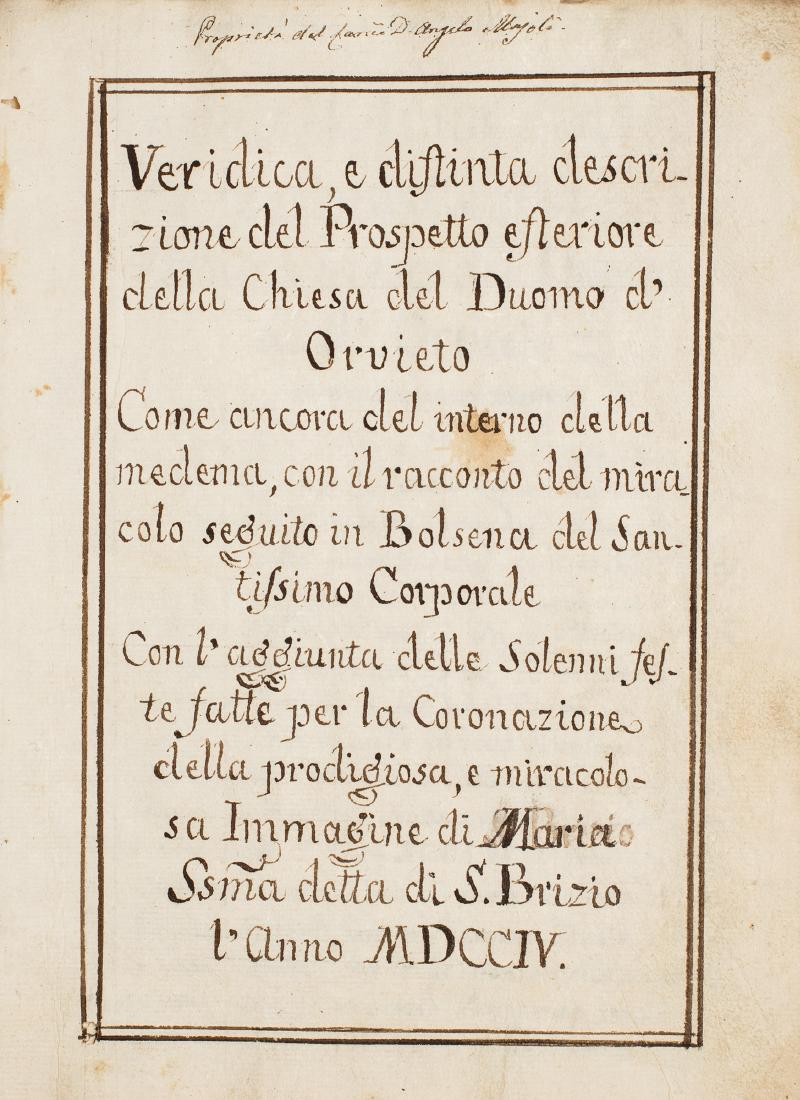 Proprietà del D. Angelo Majoli.
Veridica, e diſtinta descri-
zione del Prospetto eſteriore
della Chiesa del Duomo d'
Orvieto
Come ancora del interno della
medema, con il racconto del mira-
colo seguito in Bolsena del San-
tiſsimo Corporale
Con l'aggiunta delle Solenni feſ-
te fatte per la Coronazione
della prodigiosa, e miracolo-
sa Immagine di Maria
Ssm̃a detta di S. Brizio
l'Anno MDCCIV.